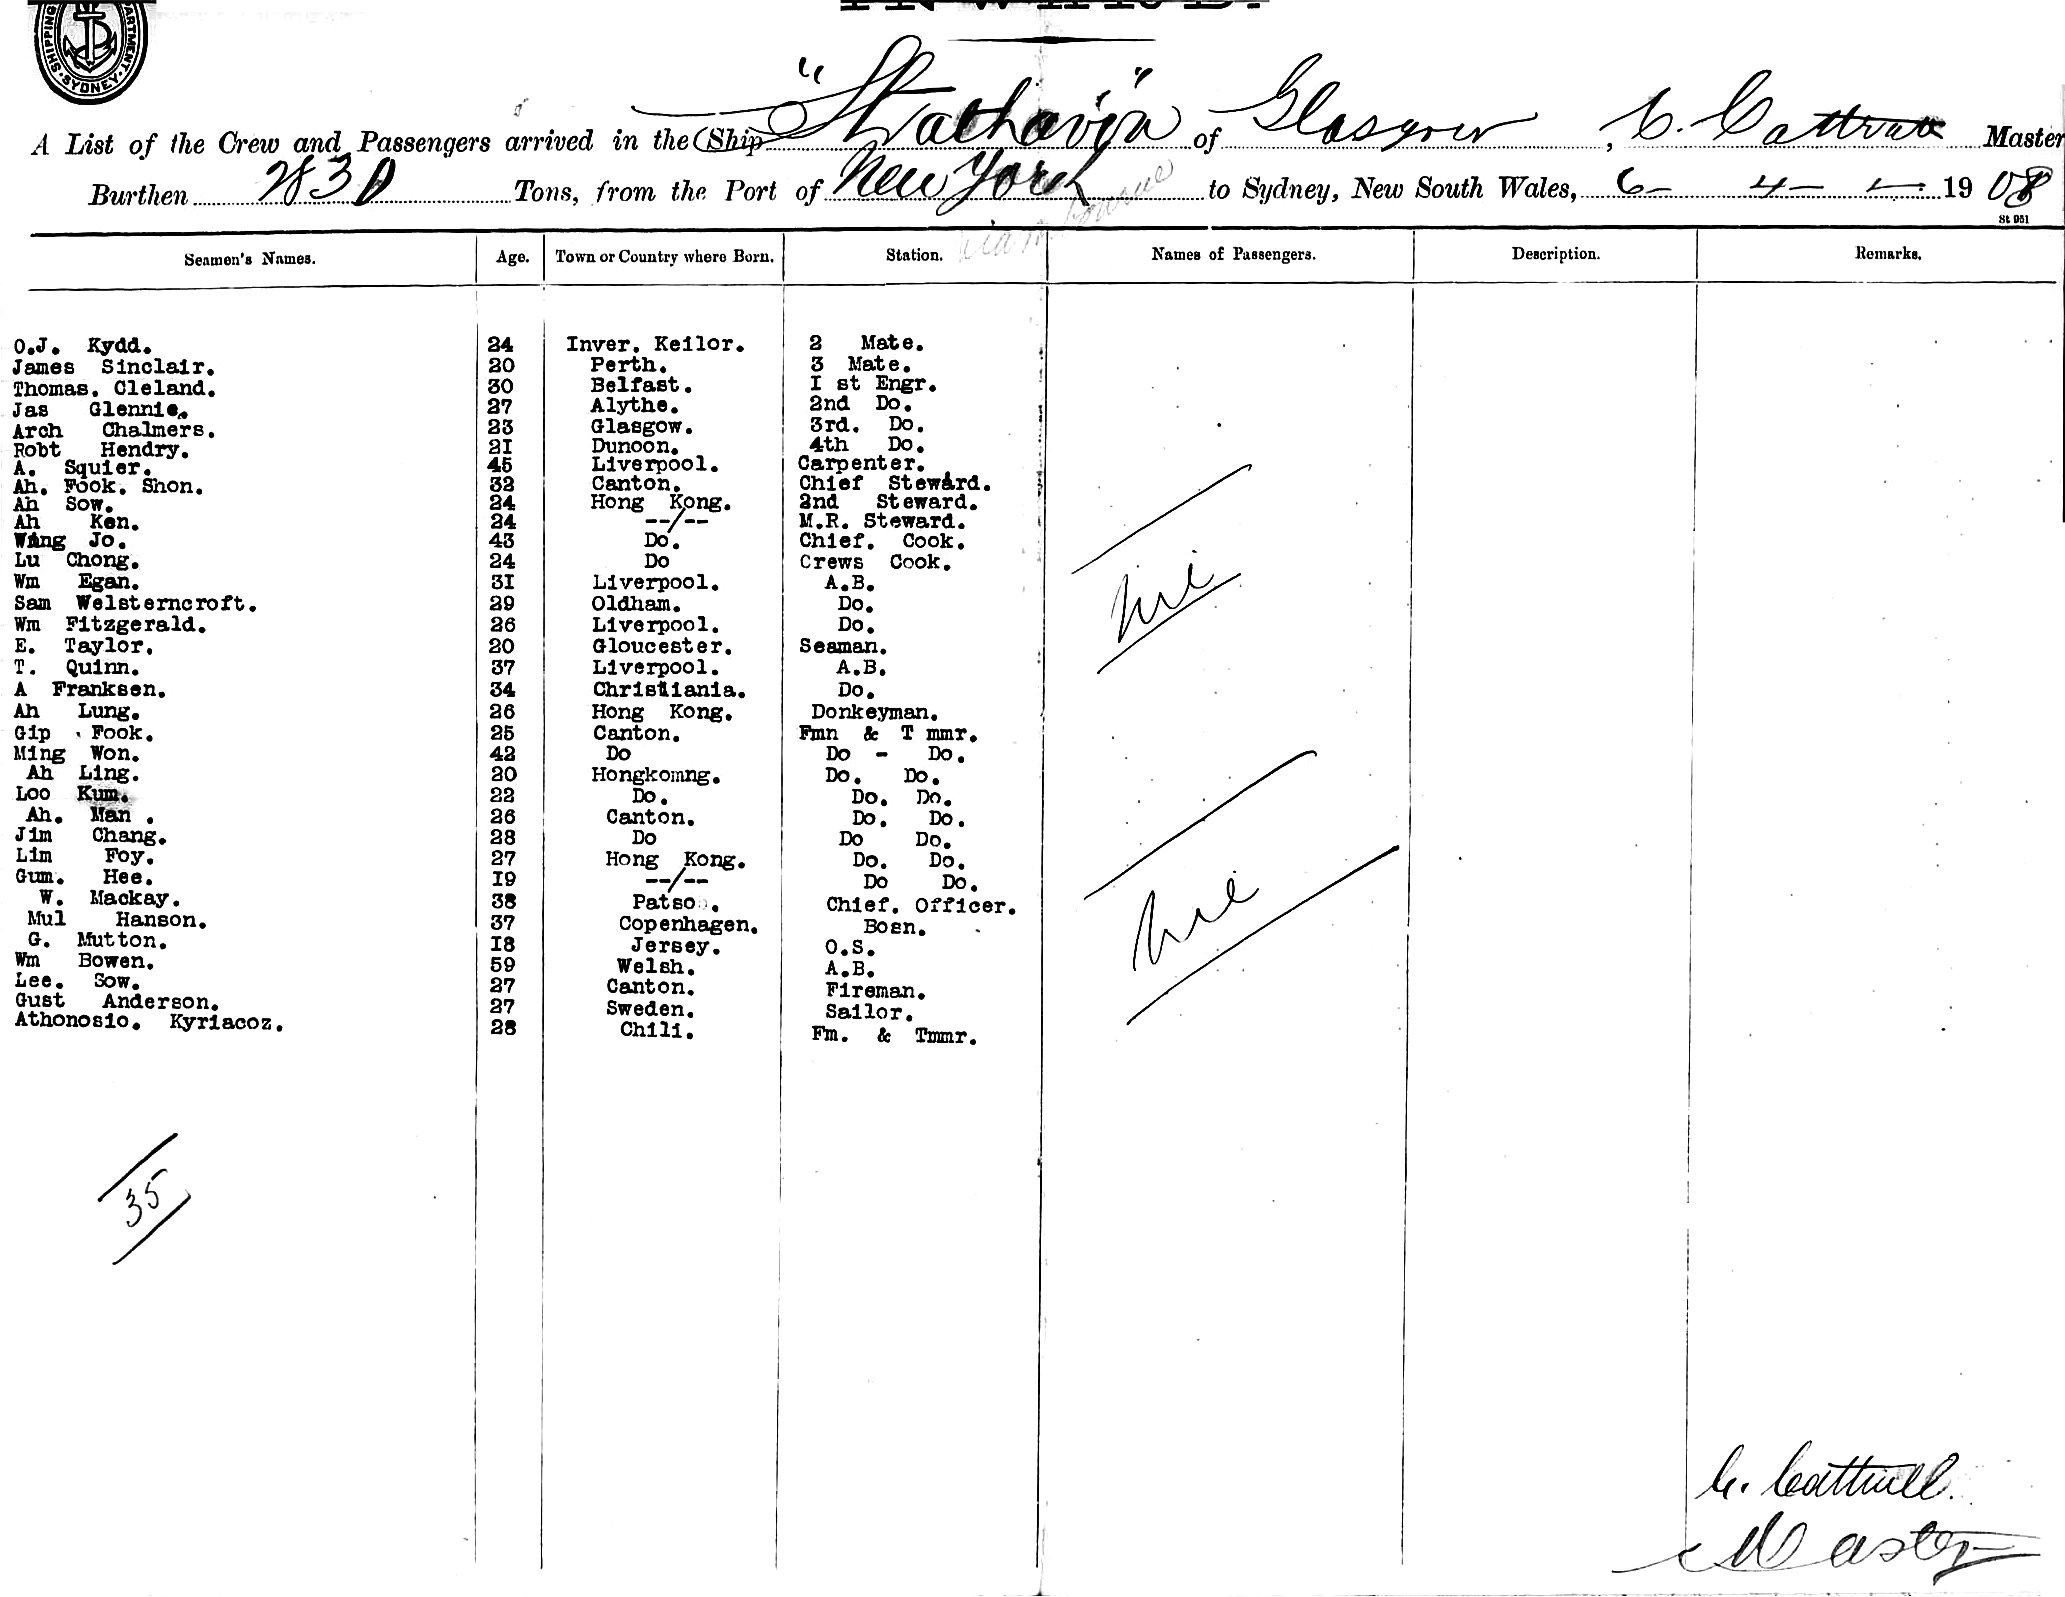 SHIPPING DEPARTMENT. SYDNEY.
INWARD.
A List of the Crew and Passengers arrived in the Ship "Strathavon" of Glasgow, C. Cattrall Master
Burthen Tons, from the Port of New York to Sydney, New South Wales, 6 - 4 - 1908
via
St 951
Seamen's Names. Age. Town or Country where Born. Station. Names of Passengers. Description. Remarks.
O.J. Kydd. 24 Inver. Keilor. 2 Mate.
James Sinclair. 20 Perth. 3 Mate.
Thomas. Cleland. 30 Belfast. I st Engr.
Jas Glennie. 27 Alythe. 2nd Do.
Arch Chalmers. 23 Glasgow. 3rd. Do.
Robt Hendry. 2I Dunoon. 4th Do.
A. Squier. 45 Liverpool. Carpenter.
Ah. Fook. Shon. 32 Canton. Chief Steward.
Ah Sow. 24 Hong Kong. 2nd Steward.
Ah Ken. 24 --/-- M.R. Steward.
Wing Jo. 43 Do. Chief. Cook.
Lu Chong. 24 Do Crews Cook.
Wm Egan. 3I Liverpool. A.B.
Sam Welsterncroft. 29 Oldham. Do.
Wm Fitzgerald. 26 Liverpool. Do.
E. Taylor. 20 Gloucester. Seaman.
T. Quinn. 37 Liverpool. A.B.
A Franksen. 34 Christiania. Do.
Ah Lung. 26 Hong Kong. Donkeyman.
Gip Fook. 25 Canton. Fmn & T mmr.
Ming Won. 42 Do Do - Do.
Ah Ling. 20 Hongkomng. Do. Do.
Loo Kum. 22 Do. Do. Do.
Ah. Man . 26 Canton. Do. Do.
Jim Chang. 28 Do Do Do.
Lim Foy. 27 Hong Kong. Do. Do.
Gum. Hee. I9 --/-- Do Do.
W. Mackay. 38 Patso . Chief. Officer.
Mul Hanson. 37 Copenhagen. Bosn.
G. Mutton. I8 Jersey. O.S.
Wm Bowen. 59 Welsh. A.B.
Lee. Sow. 27 Canton. Fireman.
Gust Anderson. 27 Sweden. Sailor.
Athonosio. Kyriacoz. 28 Chili. Fm. & Tmmr.
nil
nil
35
C. Cattrall.
Master